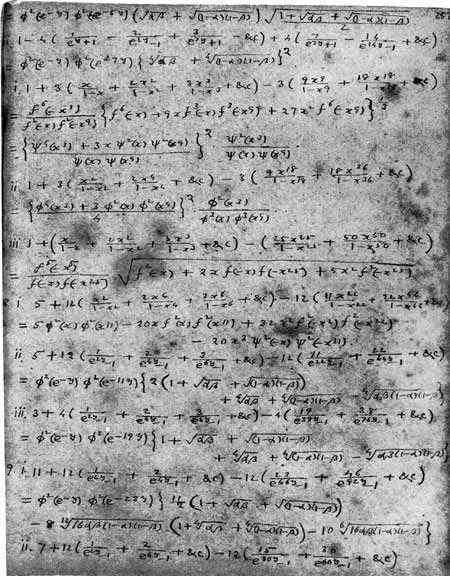 = φ²(e^-y) φ²(e^-5y) (√αβ + √(1-α)(1-β)) √(1+√αβ+√(1-α)(1-β))/2 257
ii. 1 - 4 (1/(e^y+1) - 2/(e^2y-1) + 3/(e^3y+1) - &c) + 4 (7/(e^7y+1) - 14/(e^14y-1) + &c)
= φ²(e^-y) φ²(e^-7y) {∜αβ + ∜(1-α)(1-β)}²
i. 1 + 3 (x/(1-x) + 2x²/(1-x²) + 3x³/(1-x³) + &c) - 3 (9x⁹/(1-x⁹) + 18x¹⁸/(1-x¹⁸) + &c)
= f⁶(-x³)/(f²(-x) f²(-x⁹)) {f⁶(-x) + 9x f³(-x) f³(-x⁹) + 27x² f⁶(-x⁹)}^1/3
= {(ψ⁴(x³) + 3x ψ²(x) ψ²(x⁹))/(ψ(x) ψ(x⁹))}² ψ²(x³)/(ψ(x) ψ(x⁹))
ii 1 + 3 (x²/(1-x²) + 2x⁴/(1-x⁴) + &c) - 3 (9x¹⁸/(1-x¹⁸) + 18x³⁶/(1-x³⁶) + &c)
= {(φ⁴(x³) + 3 φ²(x) φ²(x⁹))/4}² φ²(x³)/(φ³(x) φ³(x⁹))
iii 1 + (x/(1-x) + 2x²/(1-x²) + 3x³/(1-x³) + &c) - (25x²⁵/(1-x²⁵) + 50x⁵⁰/(1-x⁵⁰) + &c)
= f⁵(-x⁵)/(f(-x) f(-x²⁵)) √(f²(-x) + 2x f(-x) f(-x²⁵) + 5x² f²(-x²⁵))
8 i. 5 + 12 (x²/(1-x²) + 2x⁴/(1-x⁴) + 3x⁶/(1-x⁶) + &c) - 12 (11x²²/(1-x²²) + 22x⁴⁴/(1-x⁴⁴) + &c)
= 5 φ²(x) φ²(x¹¹) - 20x f²(x) f²(x¹¹) + 32x² f²(-x²) f²(-x²²)
- 20x³ ψ²(x) ψ²(x¹¹).
ii. 5 + 12 (1/(e^2y-1) + 2/(e^4y-1) + 3/(e^6y-1) + &c) - 12 (11/(e^22y-1) + 22/(e^44y-1) + &c)
= φ²(e^-y) φ²(e^-11y) {2 (1 + √αβ + √(1-α)(1-β))
+ ∜αβ + ∜(1-α)(1-β) - ∜αβ(1-α)(1-β)}
iii. 3 + 4 (1/(e^2y-1) + 2/(e^4y-1) + 3/(e^6y-1) + &c) - 4 (19/(e^38y-1) + 38/(e^76y-1) + &c)
= φ²(e^-y) φ²(e^-19y) {1 + √αβ + √(1-α)(1-β)
+ ∜αβ + ∜(1-α)(1-β) - ∜αβ(1-α)(1-β)}
9. i. 11 + 12 (1/(e^2y-1) + 2/(e^4y-1) + &c) - 12 (23/(e^46y-1) + 46/(e^92y-1) + &c)
= φ²(e^-y) φ²(e^-23y) {11 (1 + √αβ + √(1-α)(1-β))
(1 + ∜αβ + ∜(1-α)(1-β)) - 10
ii. 7 + 12 (1/(e^2y-1) + 2/(e^4y-1) + &c) - 12 (15/(e^30y-1) + 30/(e^60y-1) + &c)